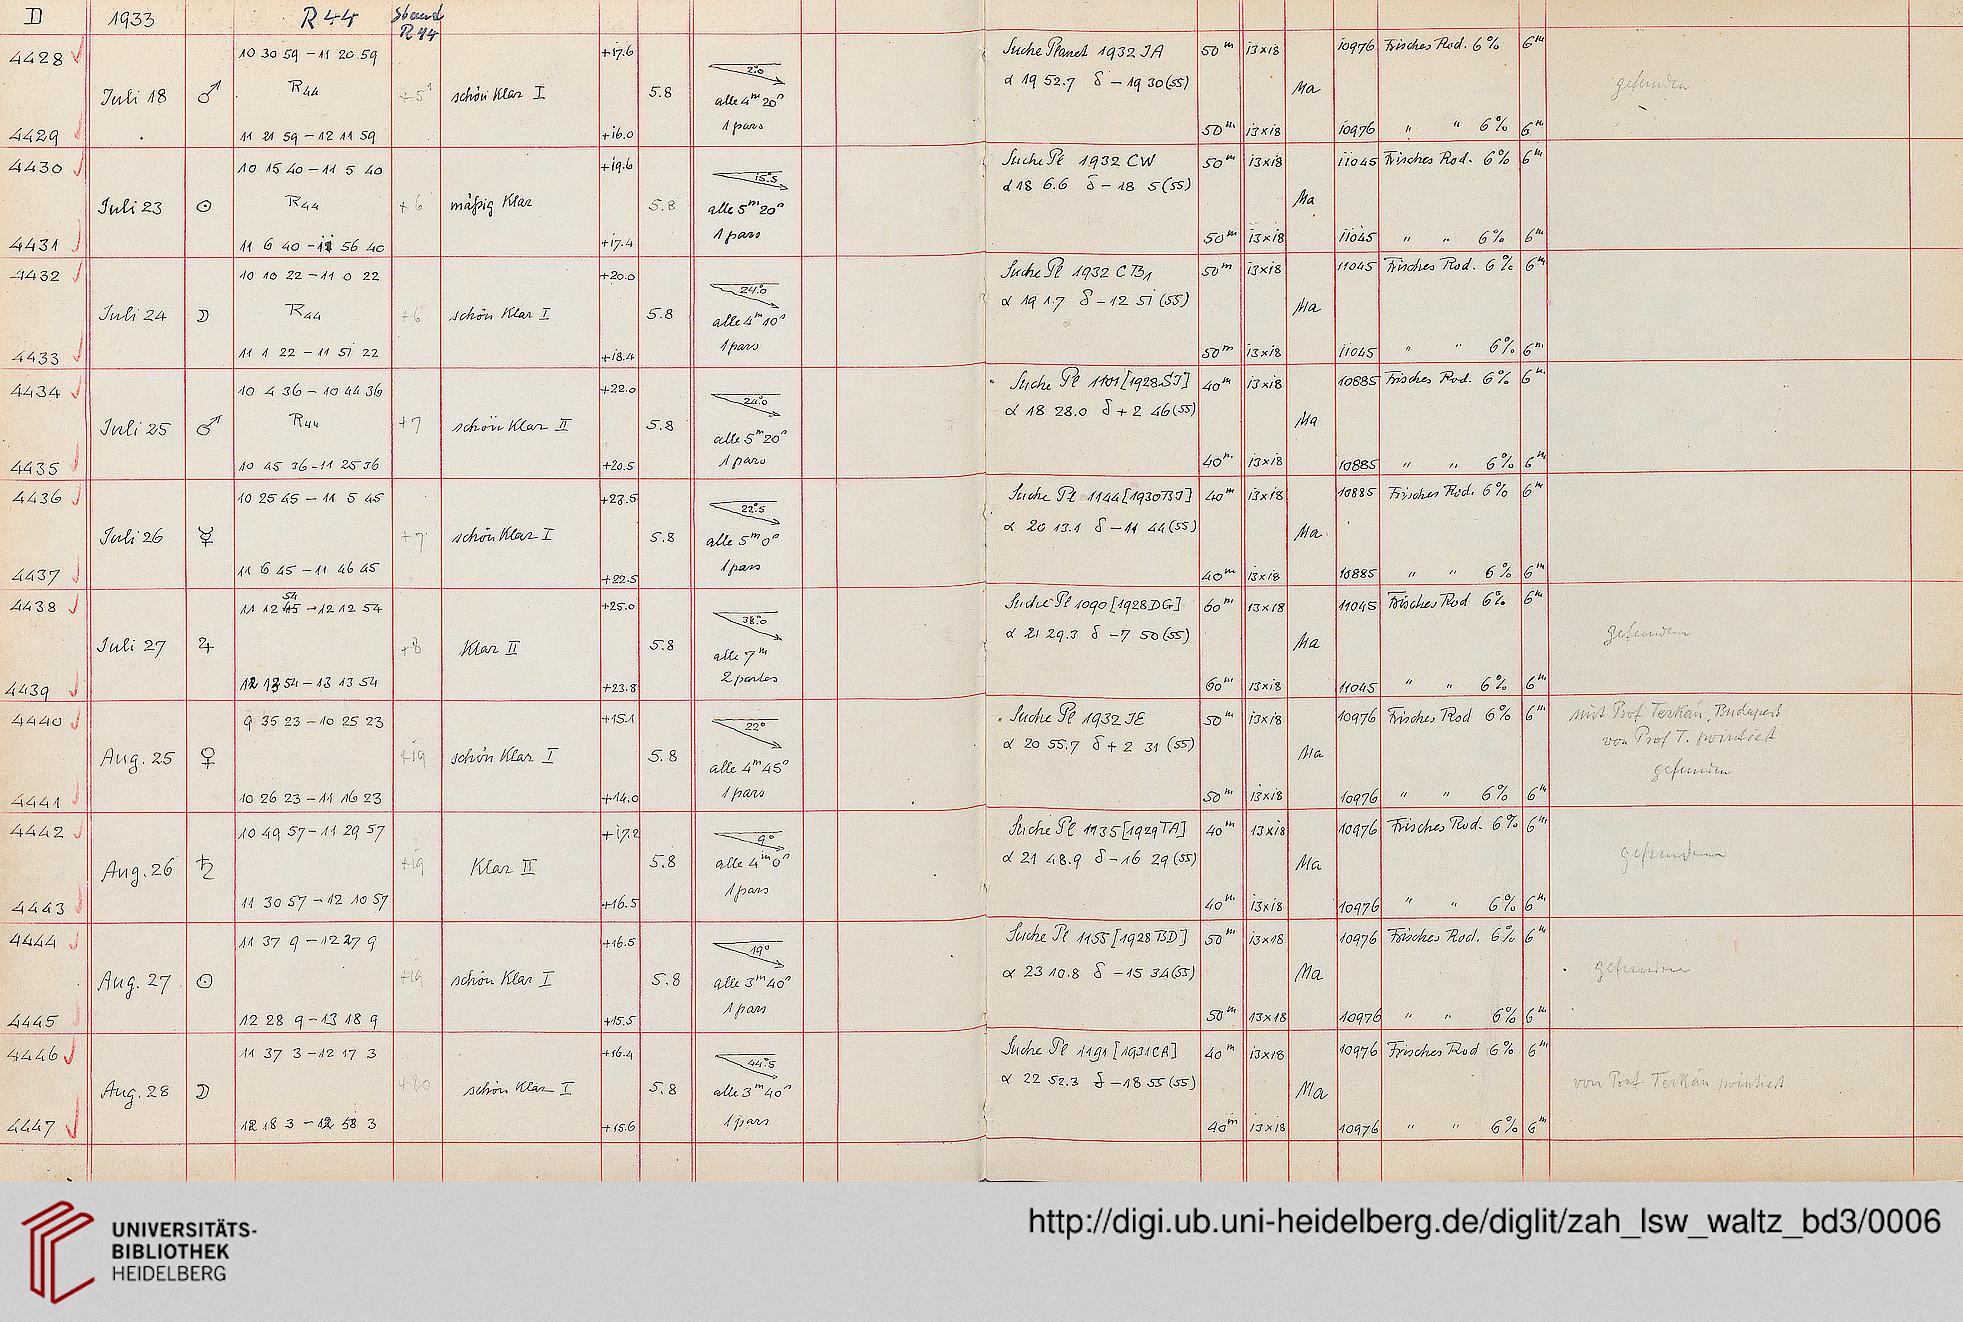 D 1933 R44 Stand R44
4428 10 30 59 – 11 20 59 +17.6 2°.0 Suche Planet 1932 JA 50ᵐ 13×18 10976 Frisches Rod. 6% 6ᵐ
Juli 18 ♂ R44 +5 schön Klar I 5.8 alle 4ᵐ 20ˢ α 19 52.7 δ – 19 30 (55) Ma gefunden
4429 11 21 59 – 12 11 59 +16.0 1 pars 50ᵐ 13×18 10976 " " 6% 6ᵐ
4430 10 15 40 – 11 5 40 +19.6 15°.5 Suche Pl 1932 CW 50ᵐ 13×18 11045 Frisches Rod. 6% 6ᵐ
Juli 23 ☉ R44 +6 mäßig Klar 5.8 alle 5ᵐ 20ˢ α 18 6.6 δ – 18 5 (55) Ma
4431 11 6 40 – 11 56 40 +17.4 1 pars 50ᵐ 13×18 11045 " " 6% 6ᵐ
4432 10 10 22 – 11 0 22 +20.0 24°.0 Suche Pl 1932 CB₁ 50ᵐ 13×18 11045 Frisches Rod. 6% 6ᵐ
Juli 24 ☽ R44 +6 schön Klar I 5.8 alle 4ᵐ 10ˢ α 19 1.7 δ – 12 51 (55) Ma
4433 11 1 22 – 11 51 22 +18.4 1 pars 50ᵐ 13×18 11045 " " 6% 6ᵐ
4434 10 4 36 – 10 44 36 +22.0 24°.0 Suche Pl 1101 [1928 SJ] 40ᵐ 13×18 10885 Frisches Rod. 6% 6ᵐ
Juli 25 ♂ R44 +7 schön Klar II 5.8 alle 5ᵐ 20ˢ α 18 28.0 δ + 2 46 (55) Ma
4435 10 45 36 – 11 25 36 +20.5 1 pars 40ᵐ 13×18 10885 " " 6% 6ᵐ
4436 10 25 45 – 11 5 45 +23.5 22°.5 Suche Pl 1144 [1930 BJ] 40ᵐ 13×18 10885 Frisches Rod. 6% 6ᵐ
Juli 26 ☿ +7 schön Klar I 5.8 alle 5ᵐ 0ˢ α 20 13.1 δ – 11 44 (55) Ma
4437 11 6 45 – 11 46 45 +22.5 1 pars 40ᵐ 13×18 10885 " " 6% 6ᵐ
4438 11 12 54 – 12 12 54 +25.0 38°.0 Suche Pl 1090 [1928 DG] 60ᵐ 13×18 11045 Frisches Rod 6% 6ᵐ
Juli 27 ♃ +8 Klar II 5.8 alle 7ᵐ α 21 29.3 δ – 7 50 (55) Ma gefunden
4439 12 13 54 – 13 13 54 +23.8 2 partes 60ᵐ 13×18 11045 " " 6% 6ᵐ
4440 9 35 23 – 10 25 23 +15.1 22° Suche Pl 1932 JE 50ᵐ 13×18 10976 Frisches Rod 6% 6ᵐ mit Prof Terkán, Budapest
Aug. 25 ♀ +19 schön Klar I 5.8 alle 4ᵐ 45ˢ α 20 55.7 δ + 2 31 (55) Ma von Prof T. pointiert
gefunden
4441 10 26 23 – 11 16 23 +14.0 1 pars 50ᵐ 13×18 10976 " " 6% 6ᵐ
4442 10 49 57 – 11 29 57 +17.2 9° Suche Pl 1135 [1929 TA] 40ᵐ 13×18 10976 Frisches Rod. 6% 6ᵐ
Aug. 26 ♄ +19 Klar II 5.8 alle 4ᵐ 0ˢ α 21 48.9 δ – 16 29 (55) Ma gefunden
4443 11 30 57 – 12 10 57 +16.5 1 pars 40ᵐ 13×18 10976 " " 6% 6ᵐ
4444 11 37 9 – 12 27 9 +16.5 19° Suche Pl 1155 [1928 BD] 50ᵐ 13×18 10976 Frisches Rod. 6% 6ᵐ
Aug. 27 ☉ +19 schön Klar I 5.8 alle 3ᵐ 40ˢ α 23 10.8 δ – 15 34 (55) Ma gefunden
4445 12 28 9 – 13 18 9 +15.5 1 pars 50ᵐ 13×18 10976 " " 6% 6ᵐ
4446 11 37 3 – 12 17 3 +16.4 44°.5 Suche Pl 1191 [1931 CA] 40ᵐ 13×18 10976 Frisches Rod 6% 6ᵐ
Aug. 28 ☽ +20 schön Klar I 5.8 alle 3ᵐ 40ˢ α 22 52.3 δ – 18 55 (55) Ma von Prof Terkán pointiert
4447 12 18 3 – 12 58 3 +15.6 1 pars 40ᵐ 13×18 10976 " " 6% 6ᵐ
UNIVERSITÄTS-
BIBLIOTHEK
HEIDELBERG
http://digi.ub.uni-heidelberg.de/diglit/zah_lsw_waltz_bd3/0006